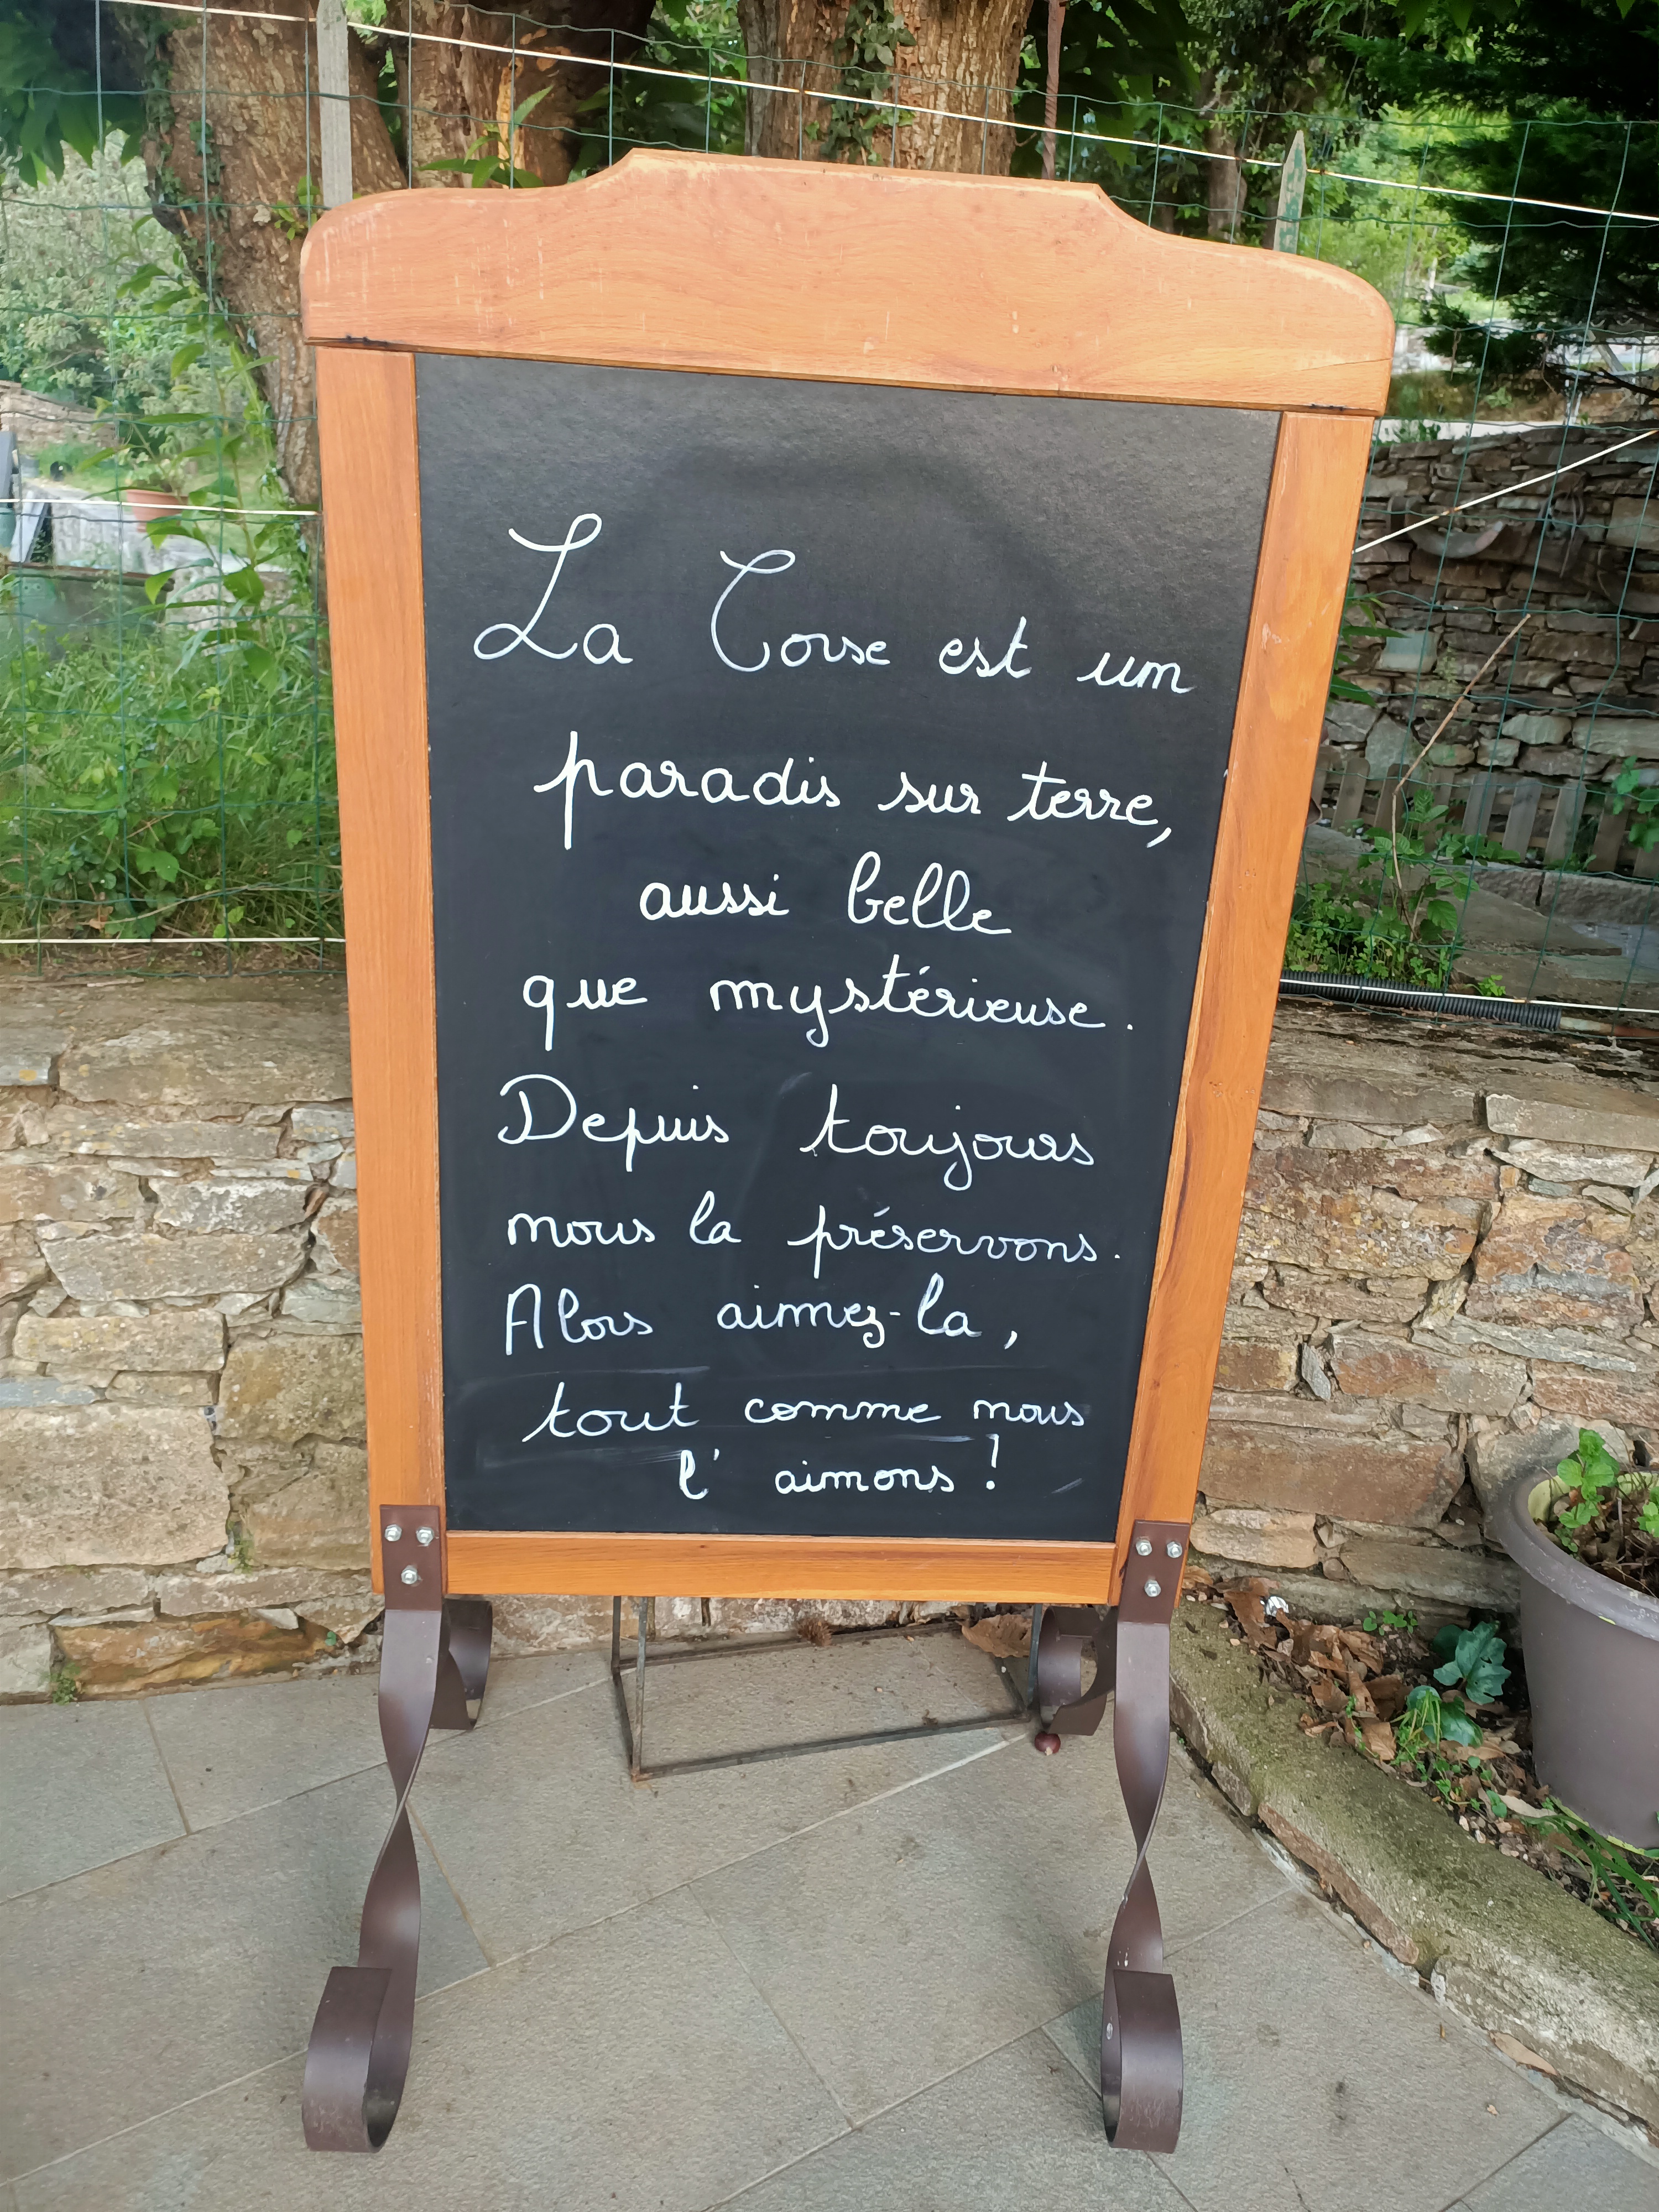 La Corse est un
paradis sur terre,
aussi belle
que mystérieuse.
Depuis toujours
nous la préservons.
Alors aimez-la,
tout comme nous
l'aimons !